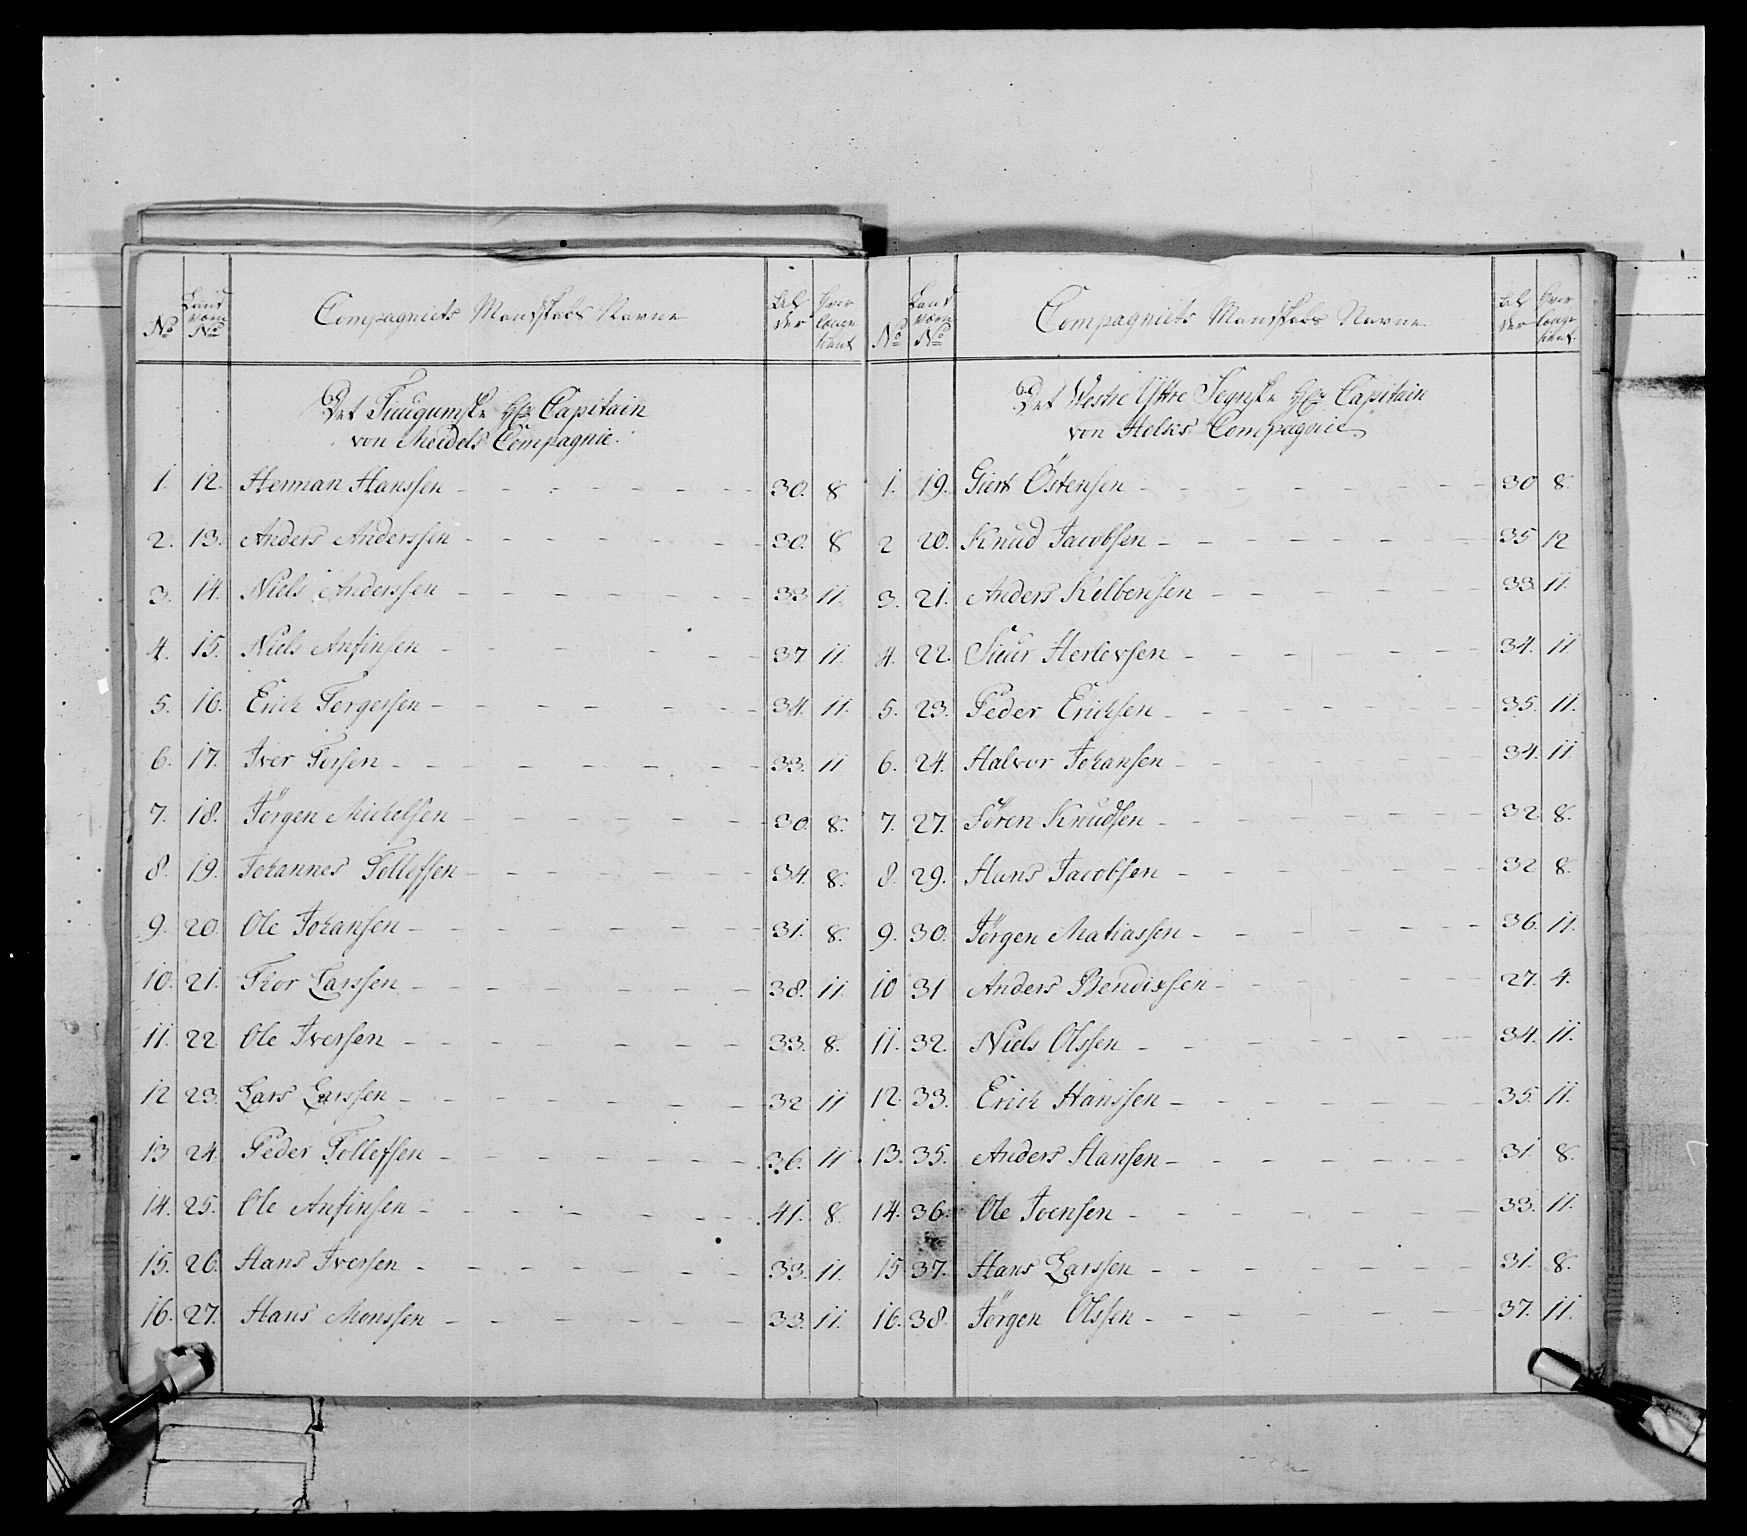 No
Land
værn
No
Compagniets Mandskabs Navne
Al
der
Over
compl
Det Fiugumske Capitain
von Meidels Compagnie.
1. 12. Herman Hanssen 30. 8
2. 13. Anders Anderssen 30. 8
3. 14. Niels Anderssen 33 11.
4. 15. Niels Anfinsen 37 11.
5. 16. Erich Torgersen 34. 11.
6. 17. Iver Torsen 33. 11
7. 18. Jörgen Michelsen 30. 8.
8. 19. Johannes Tollefsen 34. 8.
9. 20. Ole Johansen 31. 8.
10. 21. Thor Larssen 38. 11.
11. 22. Ole Iversen 33. 8.
12 23. Lars Larssen 32 11
13 24. Peder Tollefsen 36. 11
14. 25. Ole Anfinsen 41. 8.
15. 26. Hans Iversen 33. 11.
16. 27. Hans Monssen 33. 11.
No
Land
værn
No
Compagniets Mandskabs Navne
Al
der
Over
Det Westre Yttre Sognske Capitain
von Helsens Compagnie
1. 19. Giert Östensen 30 8.
2 20. Knud Jacobsen 35 12
3. 21. Anders Kelbensen 33. 11.
4. 22. Siur Herlevsen 34. 11
5. 23. Peder Erichsen 35. 11.
6. 24. Halvor Johansen 34. 11.
7. 27. Sören Knudsen 32. 8.
8. 29. Hans Jacobsen 32 8.
9. 30. Jörgen Matiassen 36. 11.
10 31 Anders Bendixsen 27. 4.
11. 32. Niels Olssen 34. 11.
12. 33. Erich Hanssen 35. 11.
13. 35. Anders Hansen 31. 8.
14. 36. Ole Joensen 33. 11.
15 37. Hans Larssen 31. 8.
16. 38. Jörgen Olssen 37. 11.